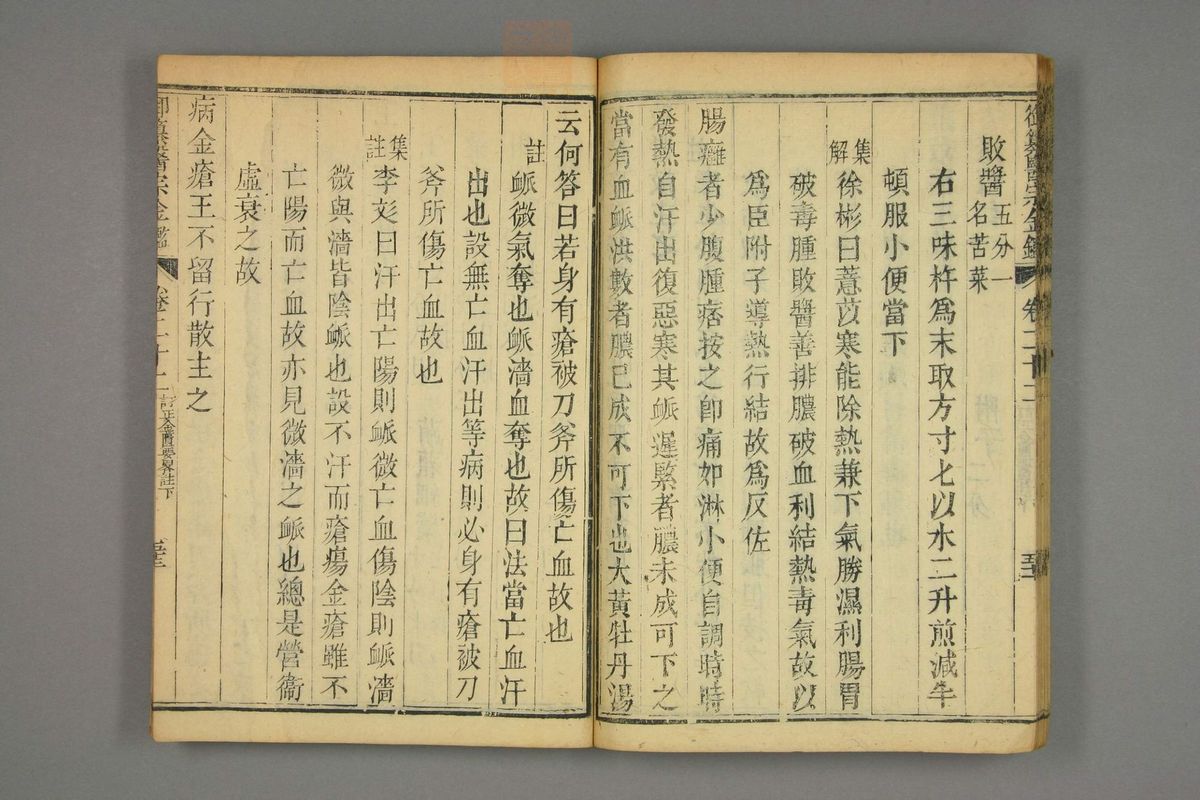 御纂醫宗金鑑 卷二十二
敗醬五分一名苦菜
右三味杵爲末取方寸匕以水二升煎減半
頓服小便當下
集解徐彬曰薏苡寒能除熱兼下氣勝濕利腸胃
破毒腫敗醬善排膿破血利結熱毒氣故以
爲臣附子導熱行結故爲反佐
腸癰者少腹腫痞按之卽痛如淋小便自調時時
發熱自汗出復惡寒其衇遲緊者膿未成可下之
當有血衇洪數者膿已成不可下也大黃牡丹湯
云何答曰若身有瘡被刀斧所傷亡血故也
註衇微氣奪也衇濇血奪也故曰法當亡血汗
出也設無亡血汗出等病則必身有瘡被刀
斧所傷亡血故也
集註李彣曰汗出亡陽則衇微亡血傷陰則衇濇
微與濇皆陰衇也設不汗而瘡瘍金瘡雖不
亡陽而亡血故亦見微濇之衇也總是營衞
虛衰之故
病金瘡王不留行散主之
御纂醫宗金鑑 卷二十二 訂正金匱要畧註下